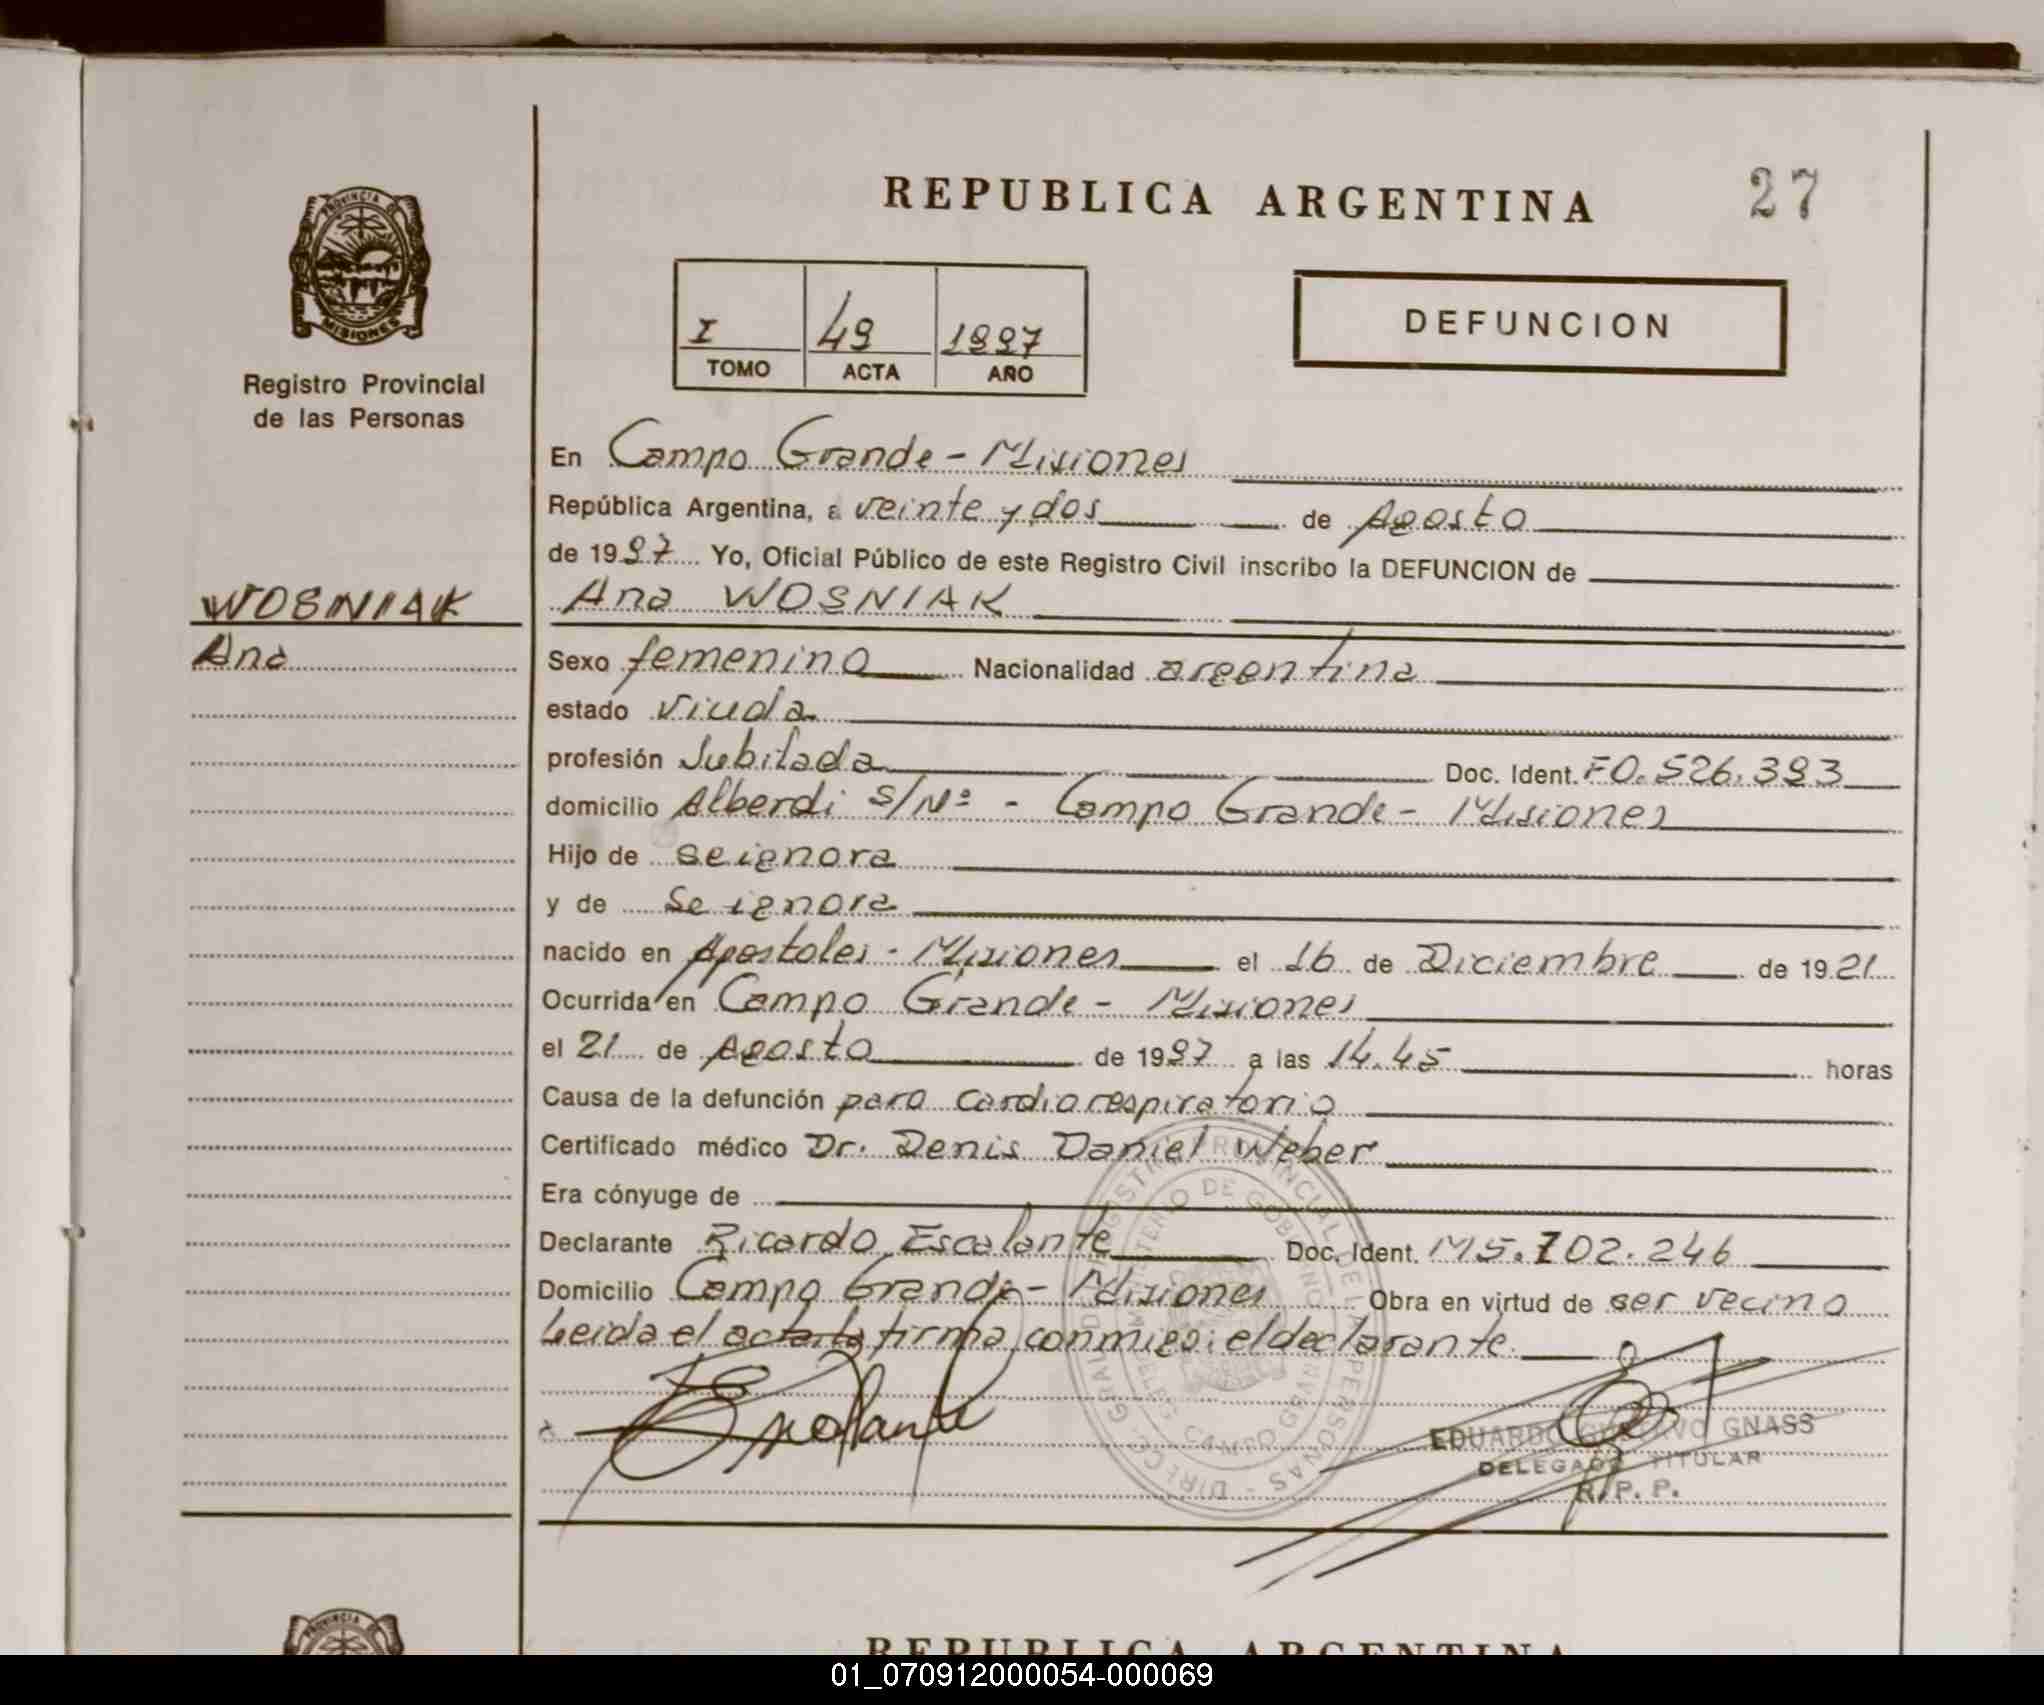 REPUBLICA ARGENTINA 27
PROVINCIA DE
MISIONES
Registro Provincial
de las Personas
I 49 1997
TOMO ACTA AÑO
DEFUNCION
En Campo Grande - Misiones
República Argentina, a veinte y dos de Agosto
de 1997 Yo, Oficial Público de este Registro Civil inscribo la DEFUNCION de
WOSNIAK
Ana
Ana WOSNIAK
Sexo femenino Nacionalidad argentina
estado viuda
profesión Jubilada Doc. Ident. F0.526.393
domicilio Alberdi S/Nº - Campo Grande - Misiones
Hijo de se ignora
y de se ignora
nacido en Apostoles - Misiones el 16 de Diciembre de 1921
Ocurrida en Campo Grande - Misiones
el 21 de Agosto de 1997 a las 14.45 horas
Causa de la defunción paro cardiorespiratorio
Certificado médico Dr. Denis Daniel Weber
Era cónyuge de
Declarante Ricardo Escalante Doc. Ident. M5.702.246
Domicilio Campo Grande - Misiones Obra en virtud de ser vecino
Leida el acta la firma conmigo: el declarante.
EDUARDO GUSTAVO GNASS
DELEGADO TITULAR
R. P. P.
REPUBLICA ARGENTINA
01_070912000054-000069